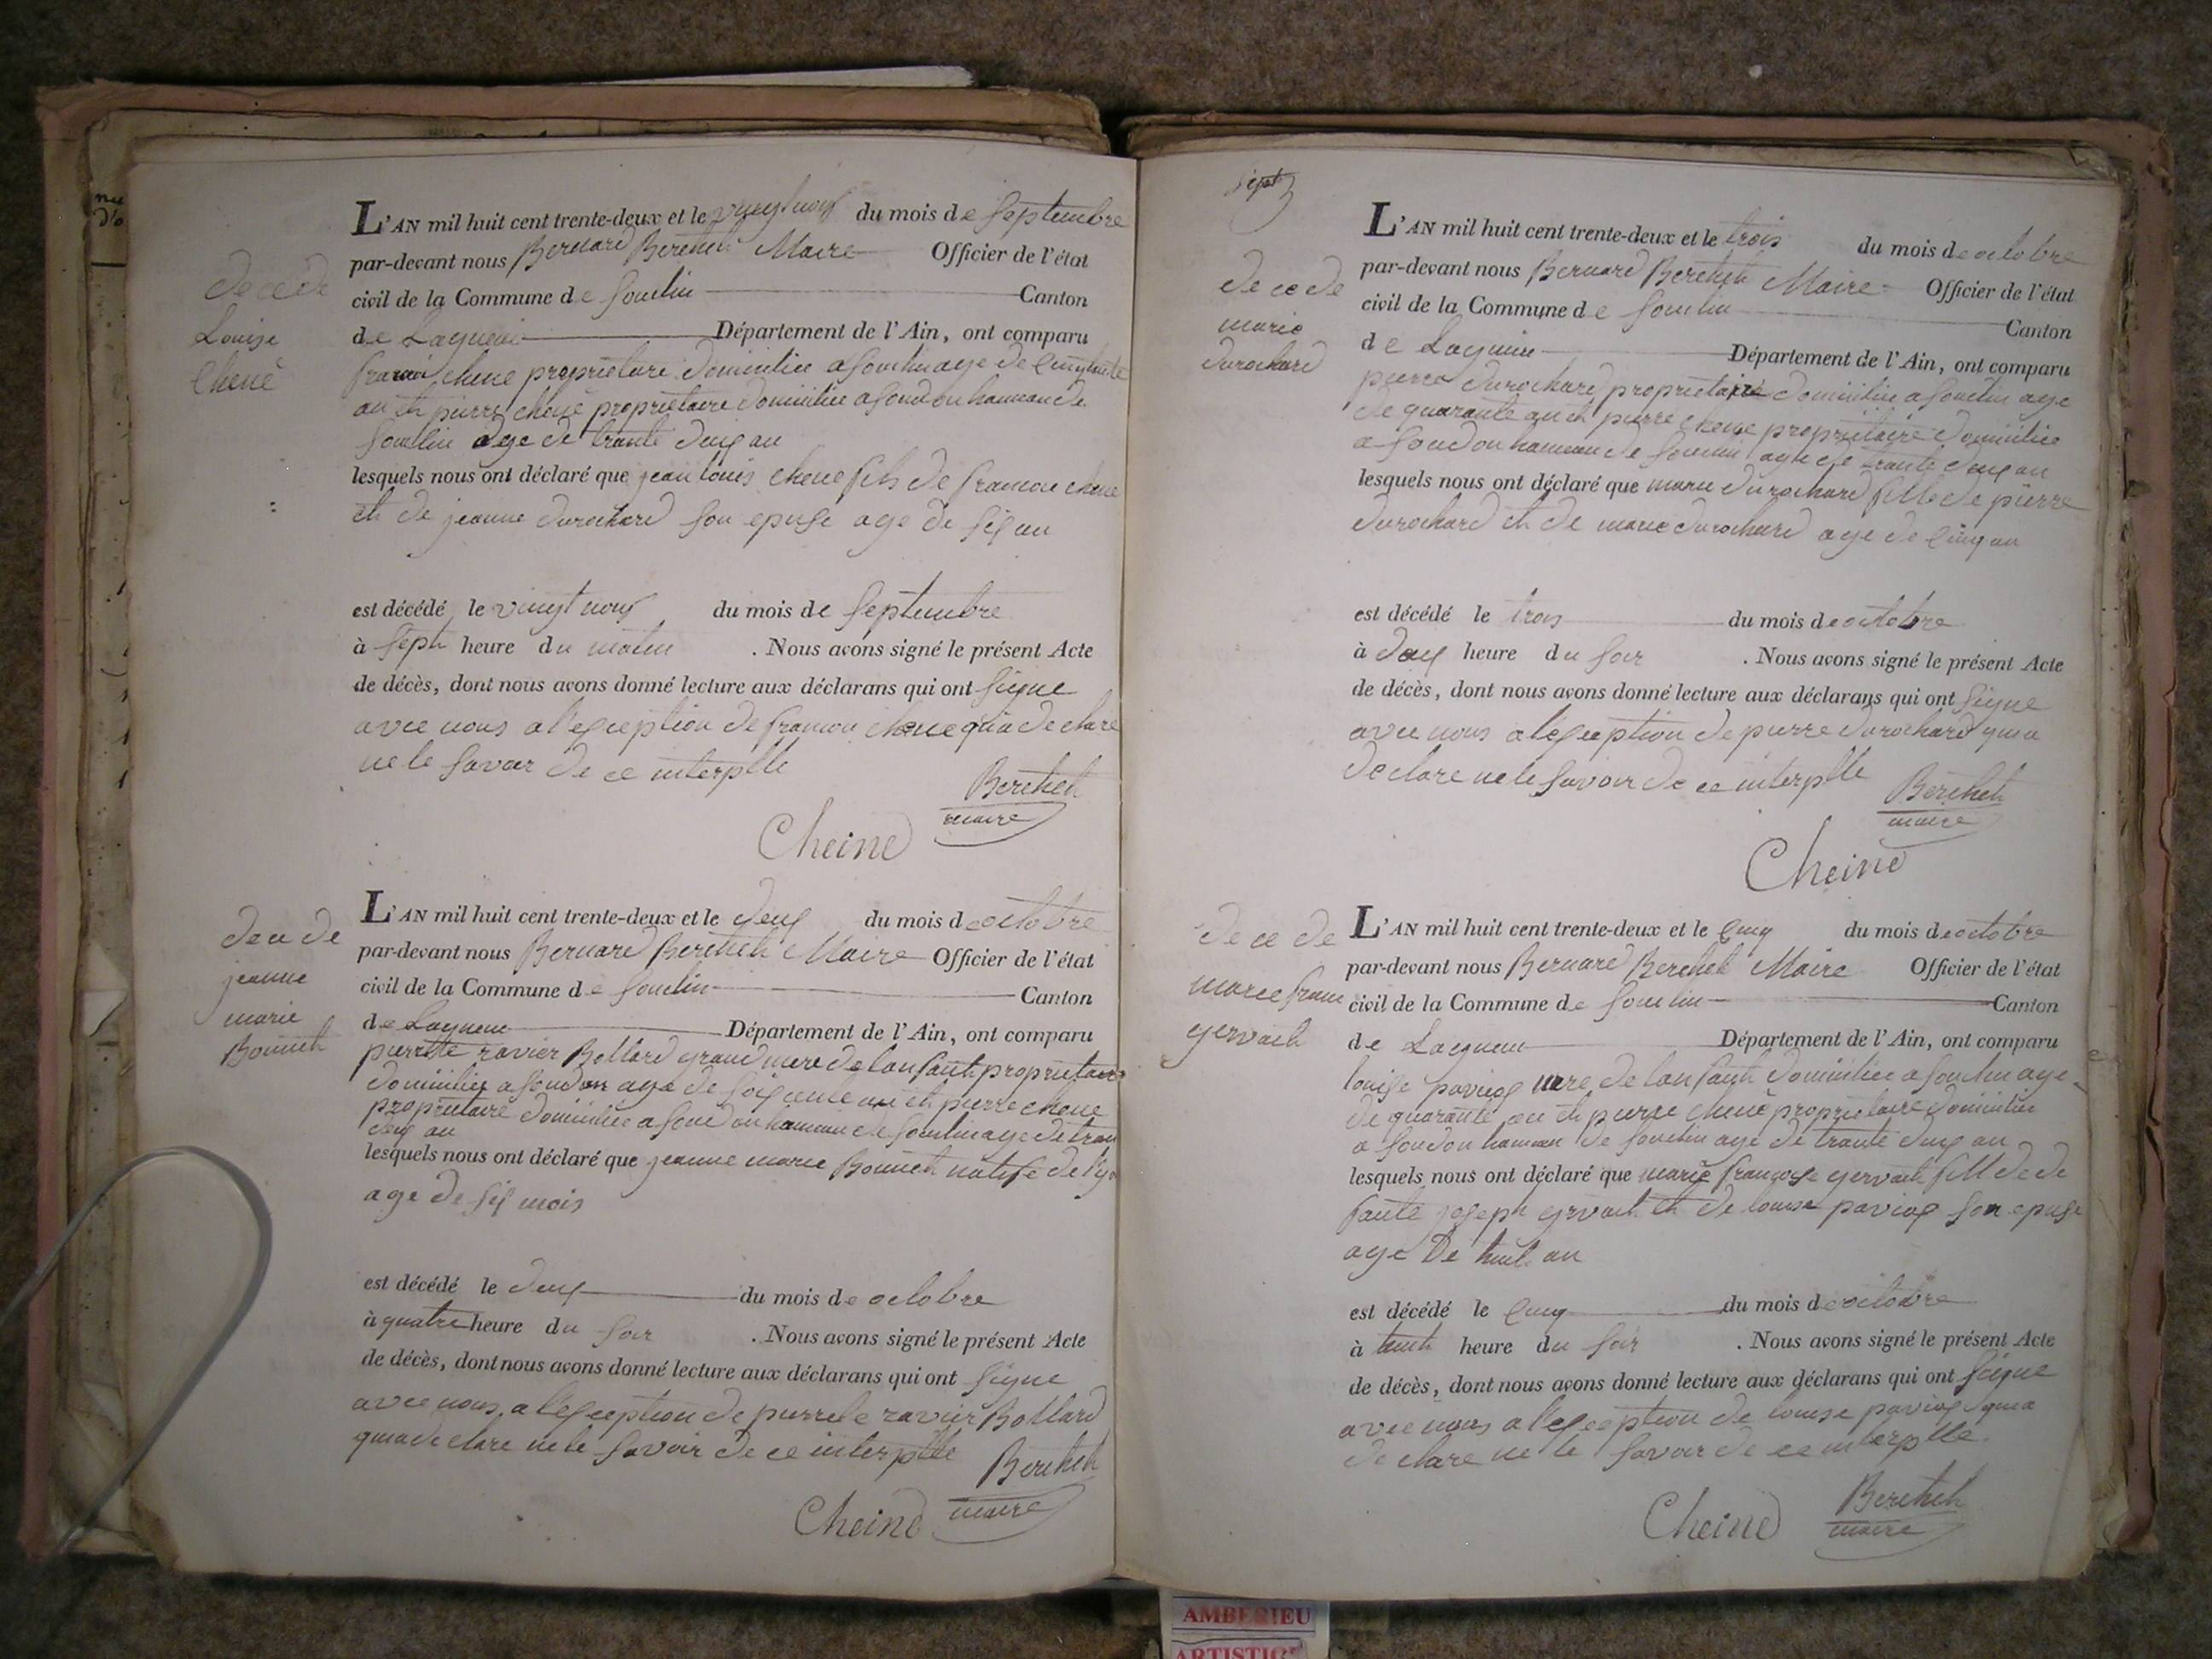 dece de
Louise
Chene
L'AN mil huit cent trente-deux et le vingt neuf du mois de septembre
par-devant nous Bernard Bercheth Maire Officier de l'état
civil de la Commune de souclin Canton
de Lagnieu Département de l'Ain, ont comparu
chene proprietaire domicilie a souclin age de
an et pierre chene proprietaire domicilie a soudon hameau de
souclin age de trante deux an
lesquels nous ont déclaré que jean louis chene fils de chene
et de jeanne durochard son epuse age de six an
est décédé le vingt neuf du mois de septembre
à septh heure du matin . Nous avons signé le présent Acte
de décès, dont nous avons donné lecture aux déclarans qui ont signe
avec nous a lexception de chene qui a declare
ne le savoir de ce interplle
Bercheth
maire
Cheine
dece de
jeanne
marie
Bonneth
L'AN mil huit cent trente-deux et le deux du mois de octobre
par-devant nous Bernard Bercheth Maire Officier de l'état
civil de la Commune de souclin Canton
de Lagnieu Département de l'Ain, ont comparu
pierrette ravier Bollard grand mere de lanfanth proprietaire
domicilie a soudon age de soixente an et pierre chene
proprietaire domicilie a soudon hameau de souclin age de tran
deux an
lesquels nous ont déclaré que jeanne marie Bonneth natife de
age de six mois
est décédé le deux du mois de octobre
à quatre heure du soir . Nous avons signé le présent Acte
de décès, dont nous avons donné lecture aux déclarans qui ont signe
avec nous a lexception de pierrete ravier Bollard
qui a declare ne le savoir de ce interplle
Bercheth
maire
Cheine
dece de
marie
durochard
L'AN mil huit cent trente-deux et le trois du mois de octobre
par-devant nous Bernard Bercheth Maire Officier de l'état
civil de la Commune de souclin Canton
de Lagnieu Département de l'Ain, ont comparu
pierre durochard proprietaire domicilie a souclin age
de quarante an et pierre chene proprietaire domicilie
a soudon hameau de souclin age de trante deux an
lesquels nous ont déclaré que marie durochard fille de pierre
durochard et de marie durochard age de cinq an
est décédé le trois du mois de octobre
à deux heure du soir . Nous avons signé le présent Acte
de décès, dont nous avons donné lecture aux déclarans qui ont signe
avec nous a lexception de pierre durochard qui a
declare ne le savoir de ce interplle
Bercheth
maire
Cheine
de ce de
marie fran
gervaith
L'AN mil huit cent trente-deux et le cinq du mois de octobre
par-devant nous Bernard Bercheth Maire Officier de l'état
civil de la Commune de souclin Canton
de Lagnieu Département de l'Ain, ont comparu
louise paviox mere de lanfanth domicilie a souclin age
de quarante an et pierre chene proprietaire domicilie
a soudon hameau de souclin age de trante deux an
lesquels nous ont déclaré que marie françoise gervaith fille de
joseph gervaith et de louise paviox son epuse
age de huit an
est décédé le cinq du mois de octobre
à huith heure du soir . Nous avons signé le présent Acte
de décès, dont nous avons donné lecture aux déclarans qui ont signe
avec nous a lexception de louise paviox qui a
declare ne le savoir de ce interplle
Bercheth
maire
Cheine
AMBERIEU